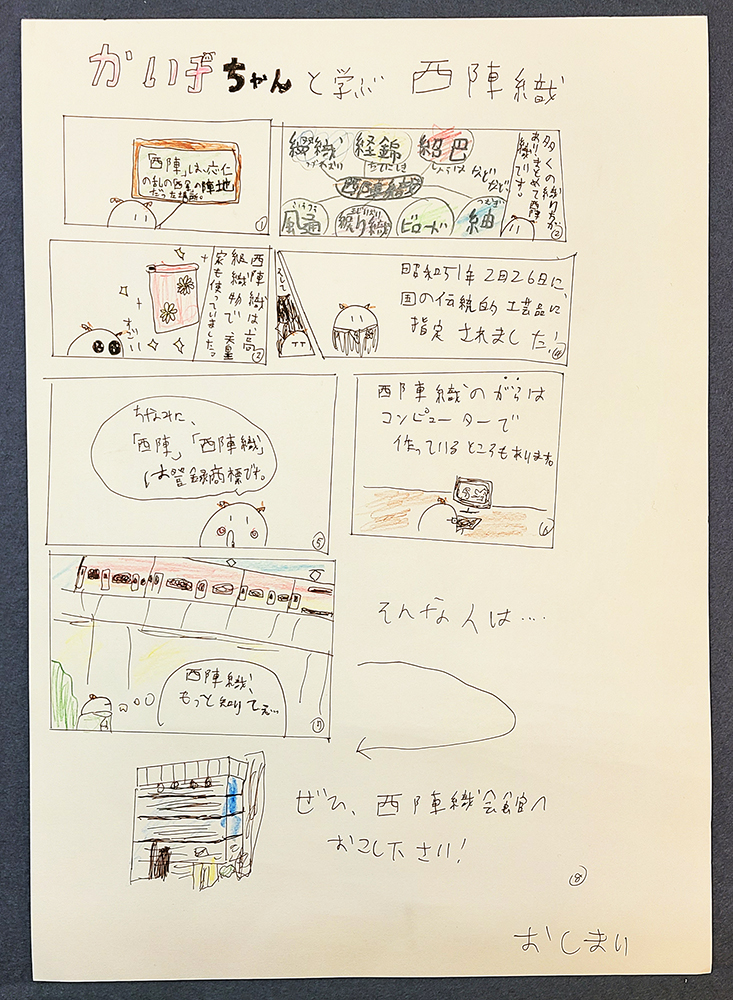 かいぎちゃんと学ぶ 西陣織
「西陣」は、応仁
の乱の西軍の陣地
だった場所。
①
綴織
つづれおり
経錦
たてにしき
紹巴
しょうは
などなど
西陣織
風通
ふうつう
綟り織
もじりおり
ビロード
紬
つむぎ
多くの織り方が
ありまとめて西陣
織です!
②
西陣織は、高
級織物で、天皇
家も使っていました。
すごい
③
そして
昭和51年2月26日に、
国の伝統的工芸品に
指定されました!
④
ちなみに、
「西陣」「西陣織」
は登録商標です。
⑤
西陣織のがらは
コンピューターで
作っているところもあります。
⑥
西陣織、
もっと知りてぇ…
⑦
そんな人は….
ぜひ、西陣織会館へ
おこし下さい!
⑧
おしまい